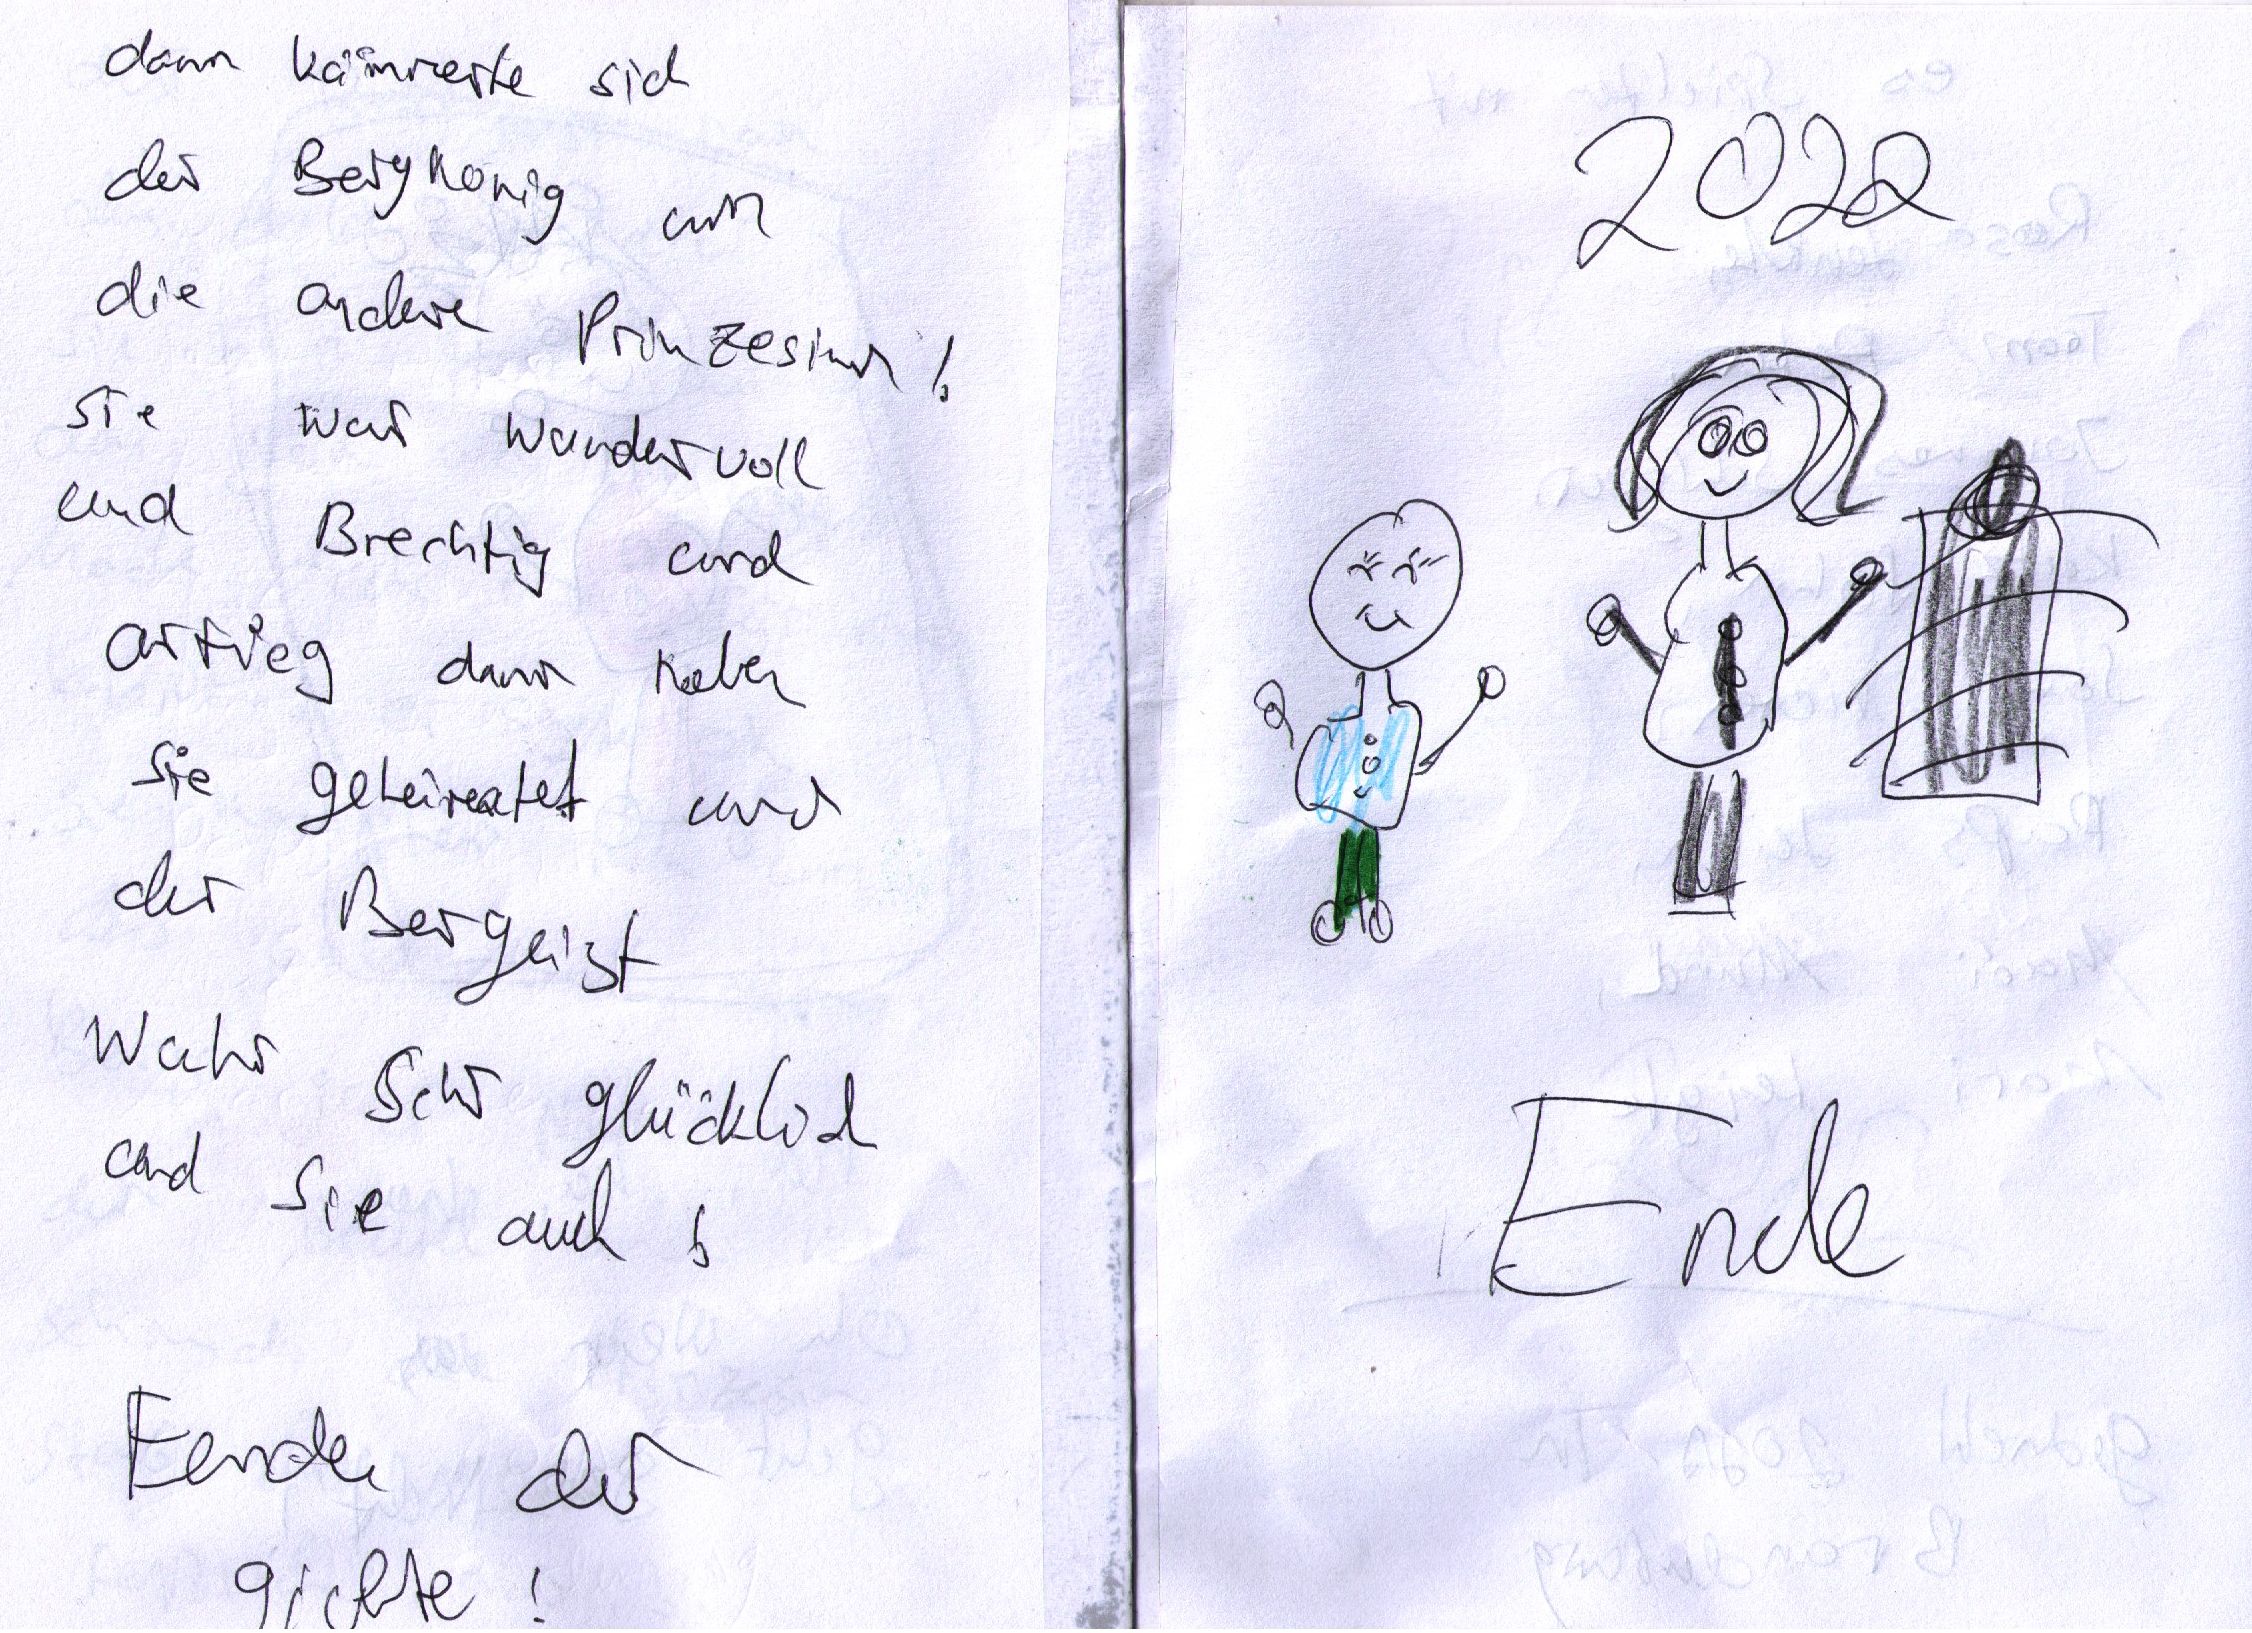 dann kämmerte sich
der Bergkönig um
die andere Prinzesinn!
sie war wundervoll
und Brechtig und
artieg dann haben
sie geheiratet und
der Bergeist
Wahr Sehr glücklich
und Sie auch!
Eende der
gichte!
2022
Ende